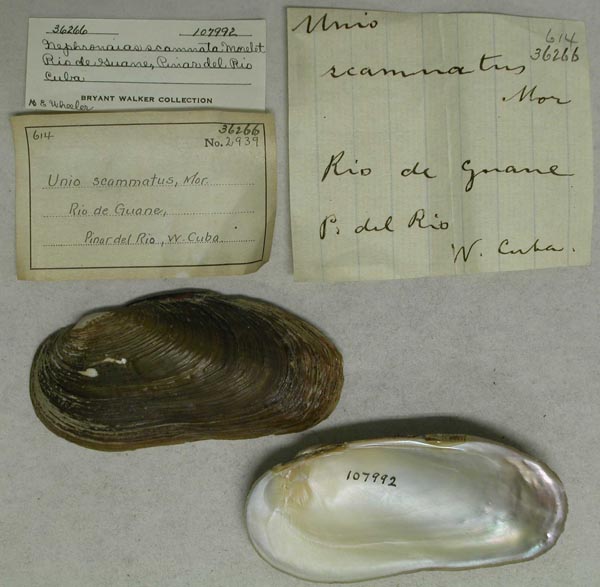 36266 107992
Nephronaias scamnata Morelet
Rio de Guane, Pinar del Rio
Cuba
BRYANT WALKER COLLECTION
H E Wheeler
614 36266
No. 2939
Unio scammatus, Mor.
Rio de Guane,
Pinar del Rio, W. Cuba.
Unio 614
36266
scamnatus
Mor
Rio de Guane
P. del Rio
W. Cuba.
107992